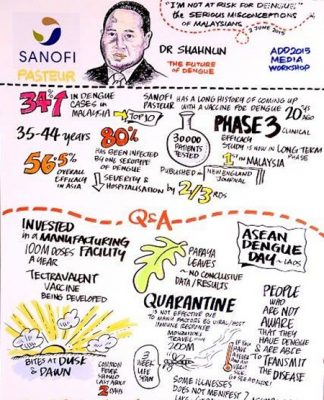 "I'M NOT AT RISK FOR DENGUE"
the SERIOUS MISCONCEPTIONS
OF MALAYSIANS
2 JUNE 2015
SANOFI
PASTEUR
DR SHAHNUN
THE FUTURE
OF DENGUE
ADD2015
MEDIA
WORKSHOP
34%
IN DENGUE
CASES IN
MALAYSIA
TOP 10
SANOFI
PASTEUR
HAS A LONG HISTORY OF COMING UP
WITH A VACCINE FOR DENGUE
20 YRS
AGO
35-44 years
80%
HAS BEEN INFECTED
BY ONE SEROTYPE
OF DENGUE
30000
PATIENTS
TESTED
PHASE 3
CLINICAL
EFFICACY
STUDY IS NOW IN LONG TERM
PHASE
1ST IN MALAYSIA
56.5%
OVERALL
EFFICACY
IN ASIA
SEVERITY &
HOSPITALISATION BY 2/3RDS
PUBLISHED IN
NEW ENGLAND
JOURNAL
Q&A
INVESTED
in a MANUFACTURING
100M DOSES FACILITY
A YEAR
TECTRAVALENT
VACCINE
BEING DEVELOPED
PAPAYA
LEAVES
~ NO CONCLUSIVE
DATA/RESULTS
ASEAN
DENGUE
DAY ~ LAOS
QUARANTINE
IS NOT EFFECTIVE DUE
TRAVEL
200M
PEOPLE
WHO
ARE NOT
AWARE
THAT THEY
HAVE DENGUE
ARE ABLE
TO
TRANSMIT
THE DISEASE
BITES AT DUSK
& DAWN
COMMON
FEVER
SHOULD
LAST ABOUT
2 DAYS
3
WEEK
LIFE
SPAN
SOME ILLNESSES
DOES NOT MANIFEST